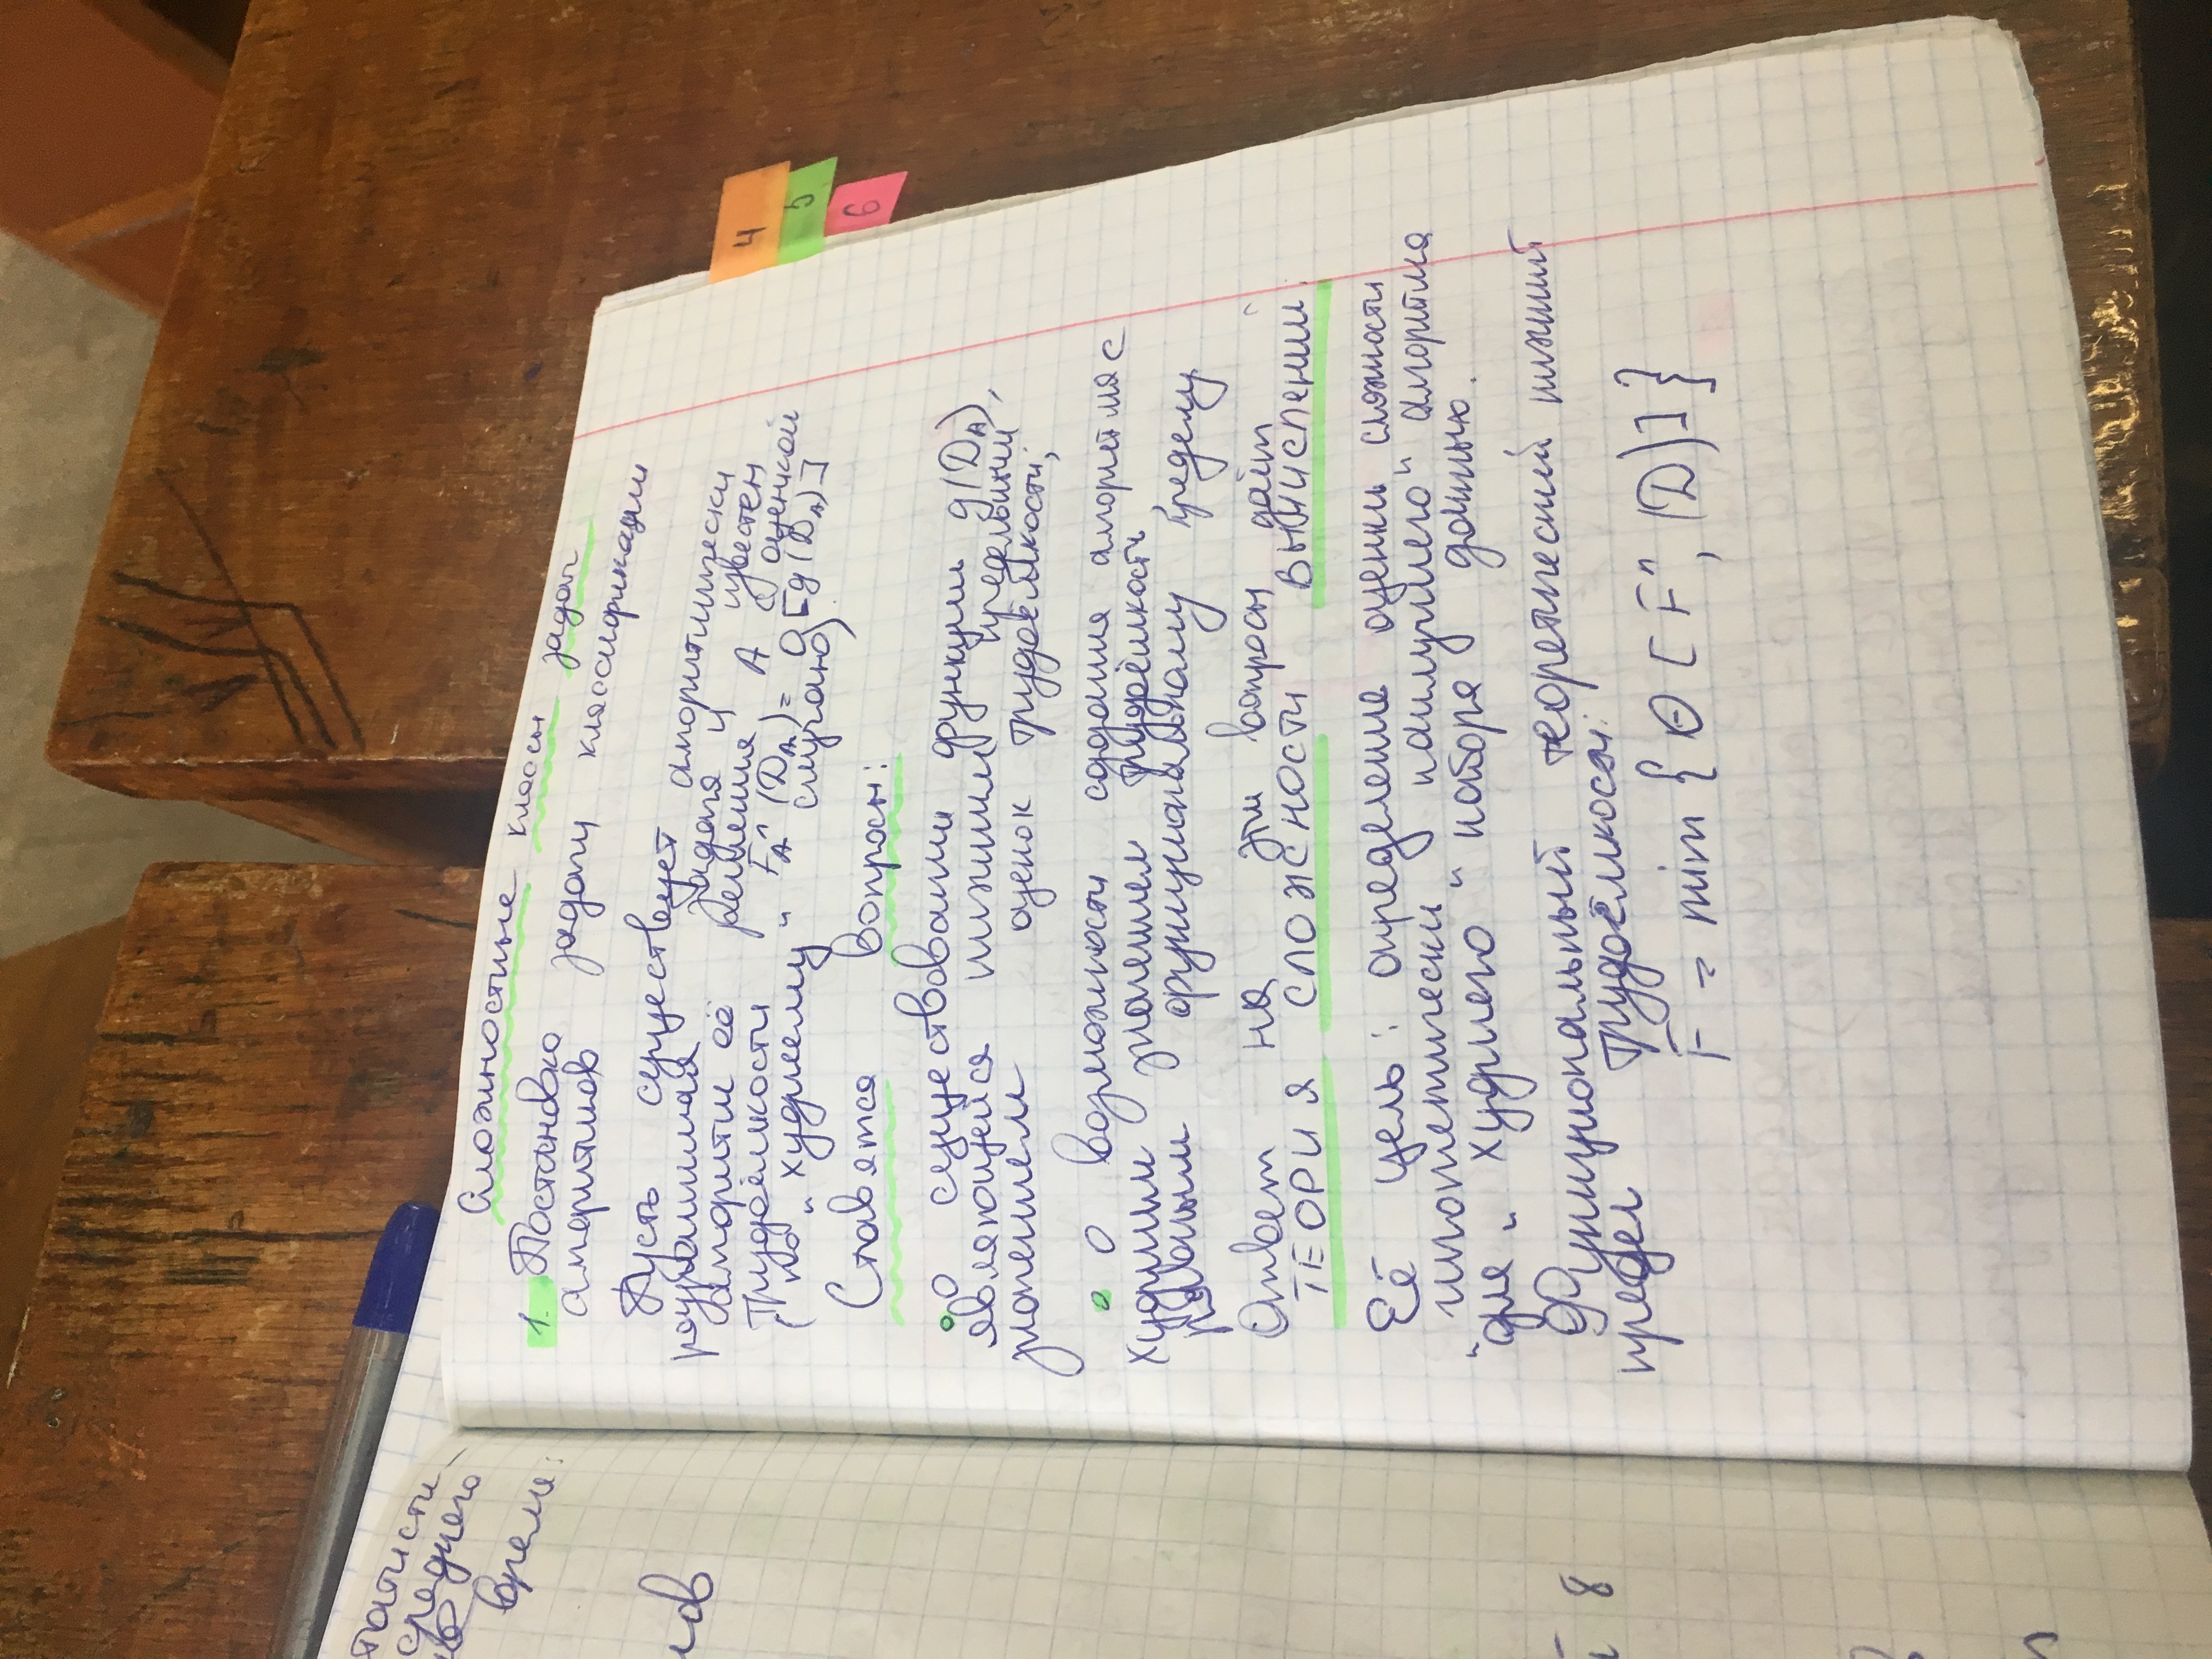 татисти-
среднего
време:
ов
8
Сложностные классы задач
1. Постановка задачи классификации
алгоритмов
Пусть существует алгоритмически
разрешимая задача и известен
алгоритм её решения A с оценкой
трудоёмкости F_A^ (D_A) = O[g(D_A)]
(по „худшему“ случаю).
Ставятся вопросы:
о существовании функции g(D_A),
являющейся нижним предельным
значением оценок трудоёмкости;
о возможности создания алгоритма с
худшим значением трудоёмкости,
равным функциональному пределу
Ответ на эти вопросы даёт
ТЕОРИЯ СЛОЖНОСТИ ВЫЧИСЛЕНИЙ.
Её цель: определение оценки сложности
гипотетически „наилучшего“ алгоритма
для „худшего“ набора данных.
Функциональный теоретический нижний
предел трудоёмкости:
F = min { Θ [ F^, (D) ] }
4
5
6